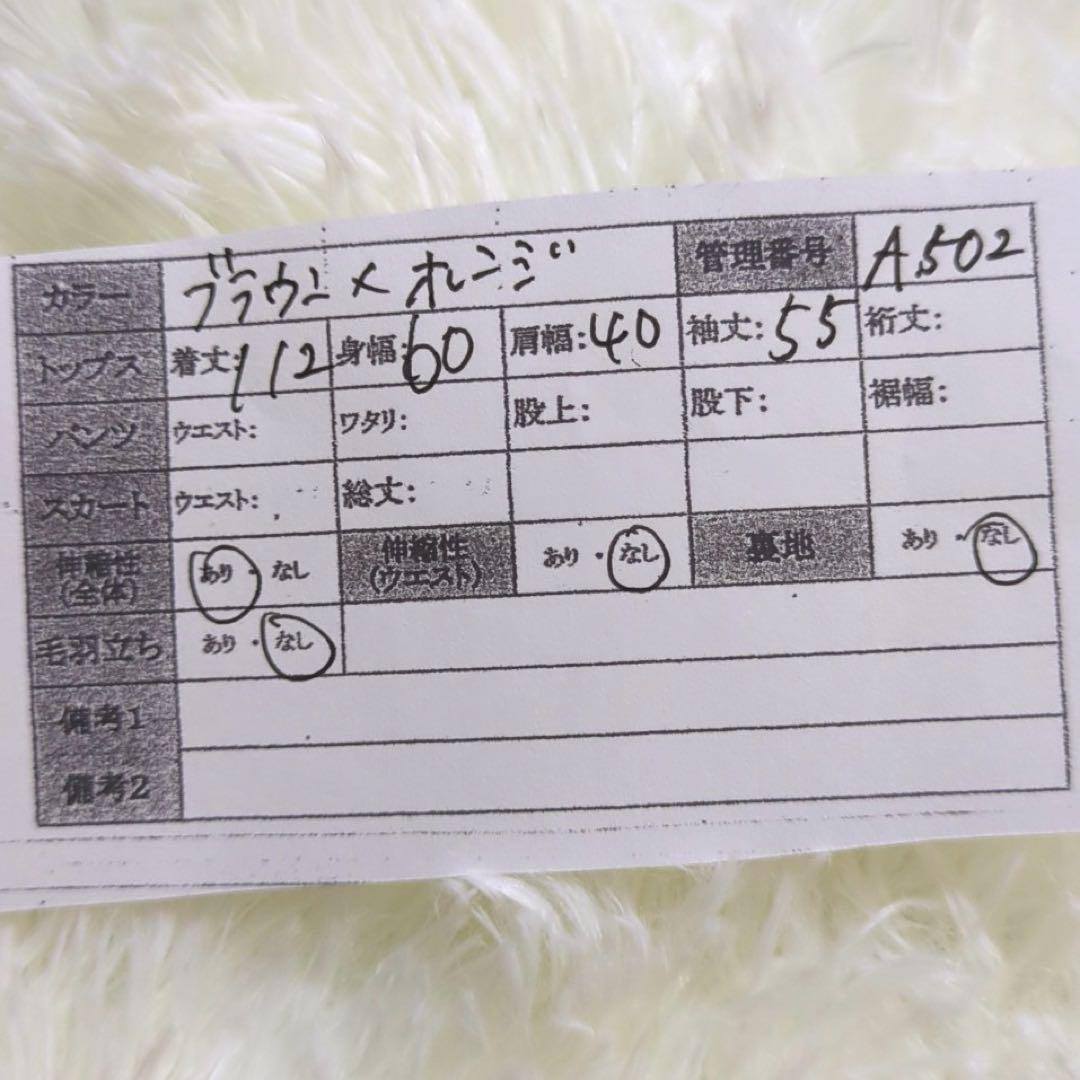 カラー ブラウン×オレンジ 管理番号 A502
トップス 着丈:112 身幅:60 肩幅:40 袖丈:55 裄丈:
パンツ ウエスト: ワタリ: 股上: 股下: 裾幅:
スカート ウエスト: 総丈:
伸縮性(全体) あり・なし 伸縮性(ウエスト) あり・なし 裏地 あり・なし
毛羽立ち あり・なし
備考1
備考2